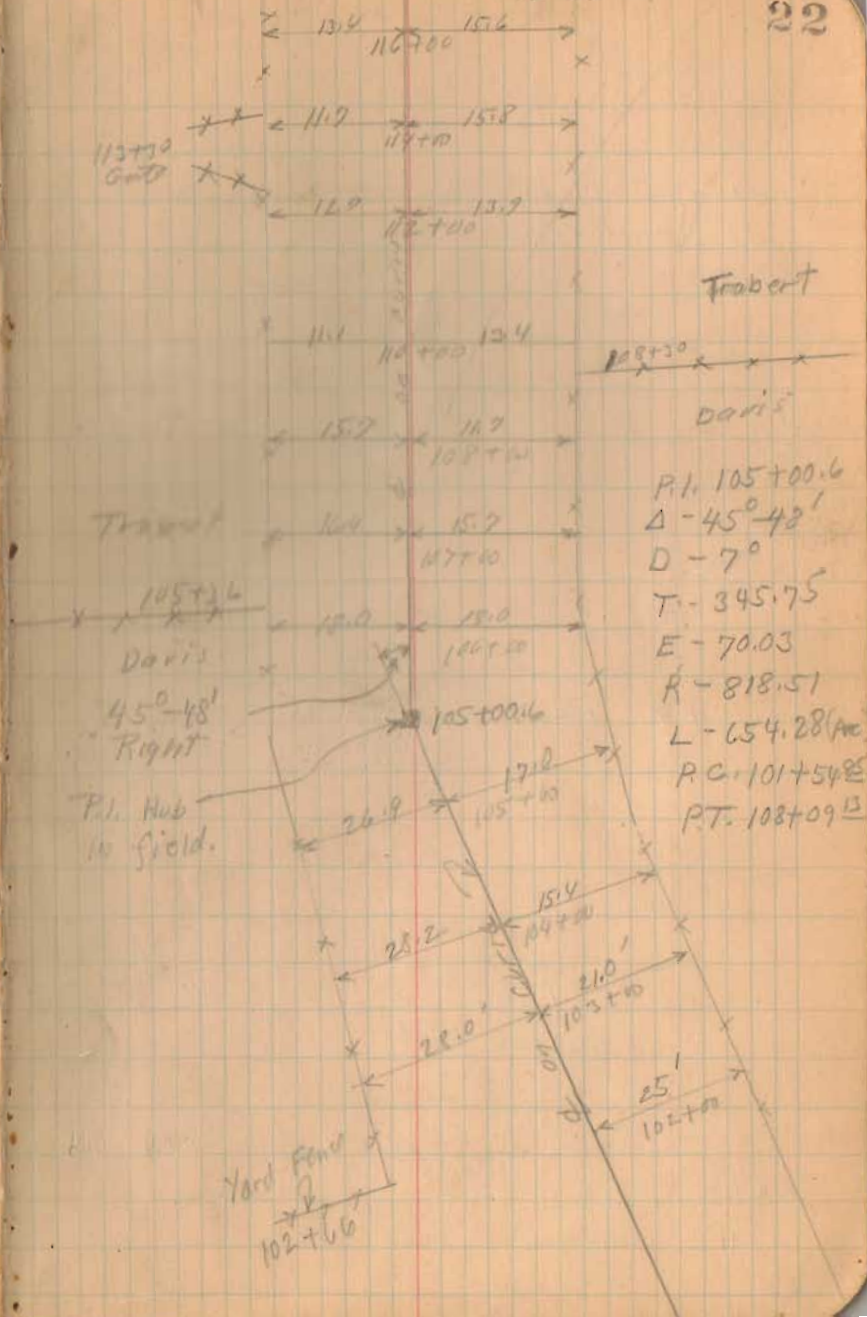 22
13.4 15.6
116+00
11.7 15.8
114+00
113+30
Gate
12.9 13.9
112+00
Trabert
11.1 13.4
110+00
108+30
Davis
15.7 11.7
108+00
P.I. 105+00.6
Δ - 45°-48'
D - 7°
T. - 345.75
E - 70.03
R - 818.51
L - 654.28
P.C. 101+54 85
P.T. 108+09 13
Trabert
16.4 15.7
107+00
105+36
18.0 18.0
106+00
Davis
45°-48'
Right
105+00.6
P.I. Hub
in field.
26.9 17.0
105+00
28.2 15.4
104+00
28.0' 21.0'
103+00
25'
102+00
Yard Fence
102+66'